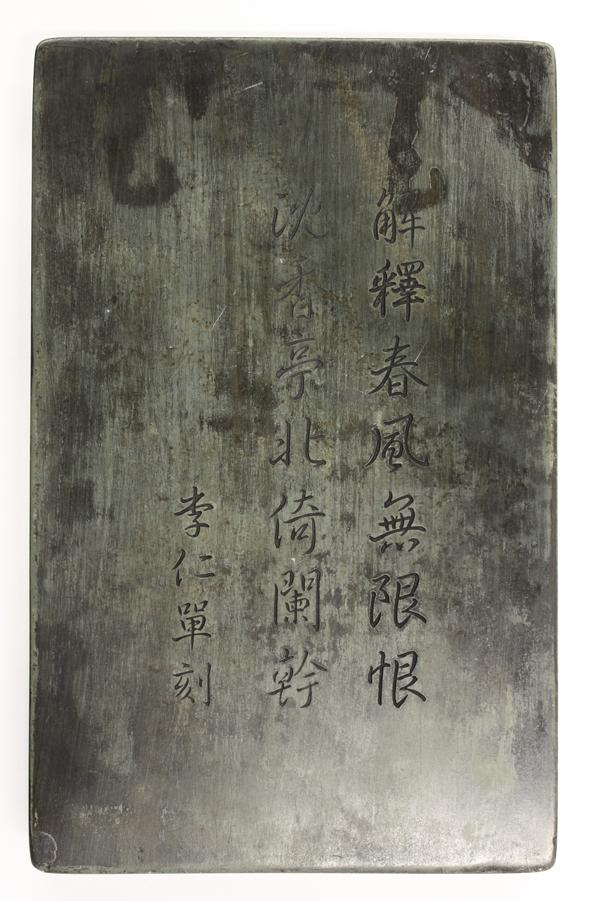 解釋春風無限恨
沈香亭北倚闌幹
李仁單刻